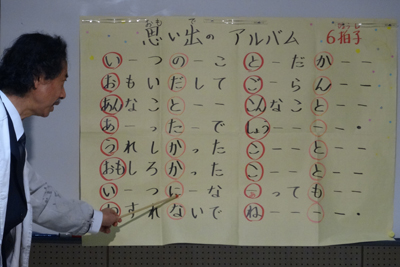 思い出のアルバム 6拍子
いーつのーことーだかーー
おもいだしてごーらんーー
あんなことーーこんなことーー
あーったーでしょうーーーー・
うれしかったこーとーー
おもしろかったこーとーー
いーつにーなーってもーー
わすれないでねーーーー・